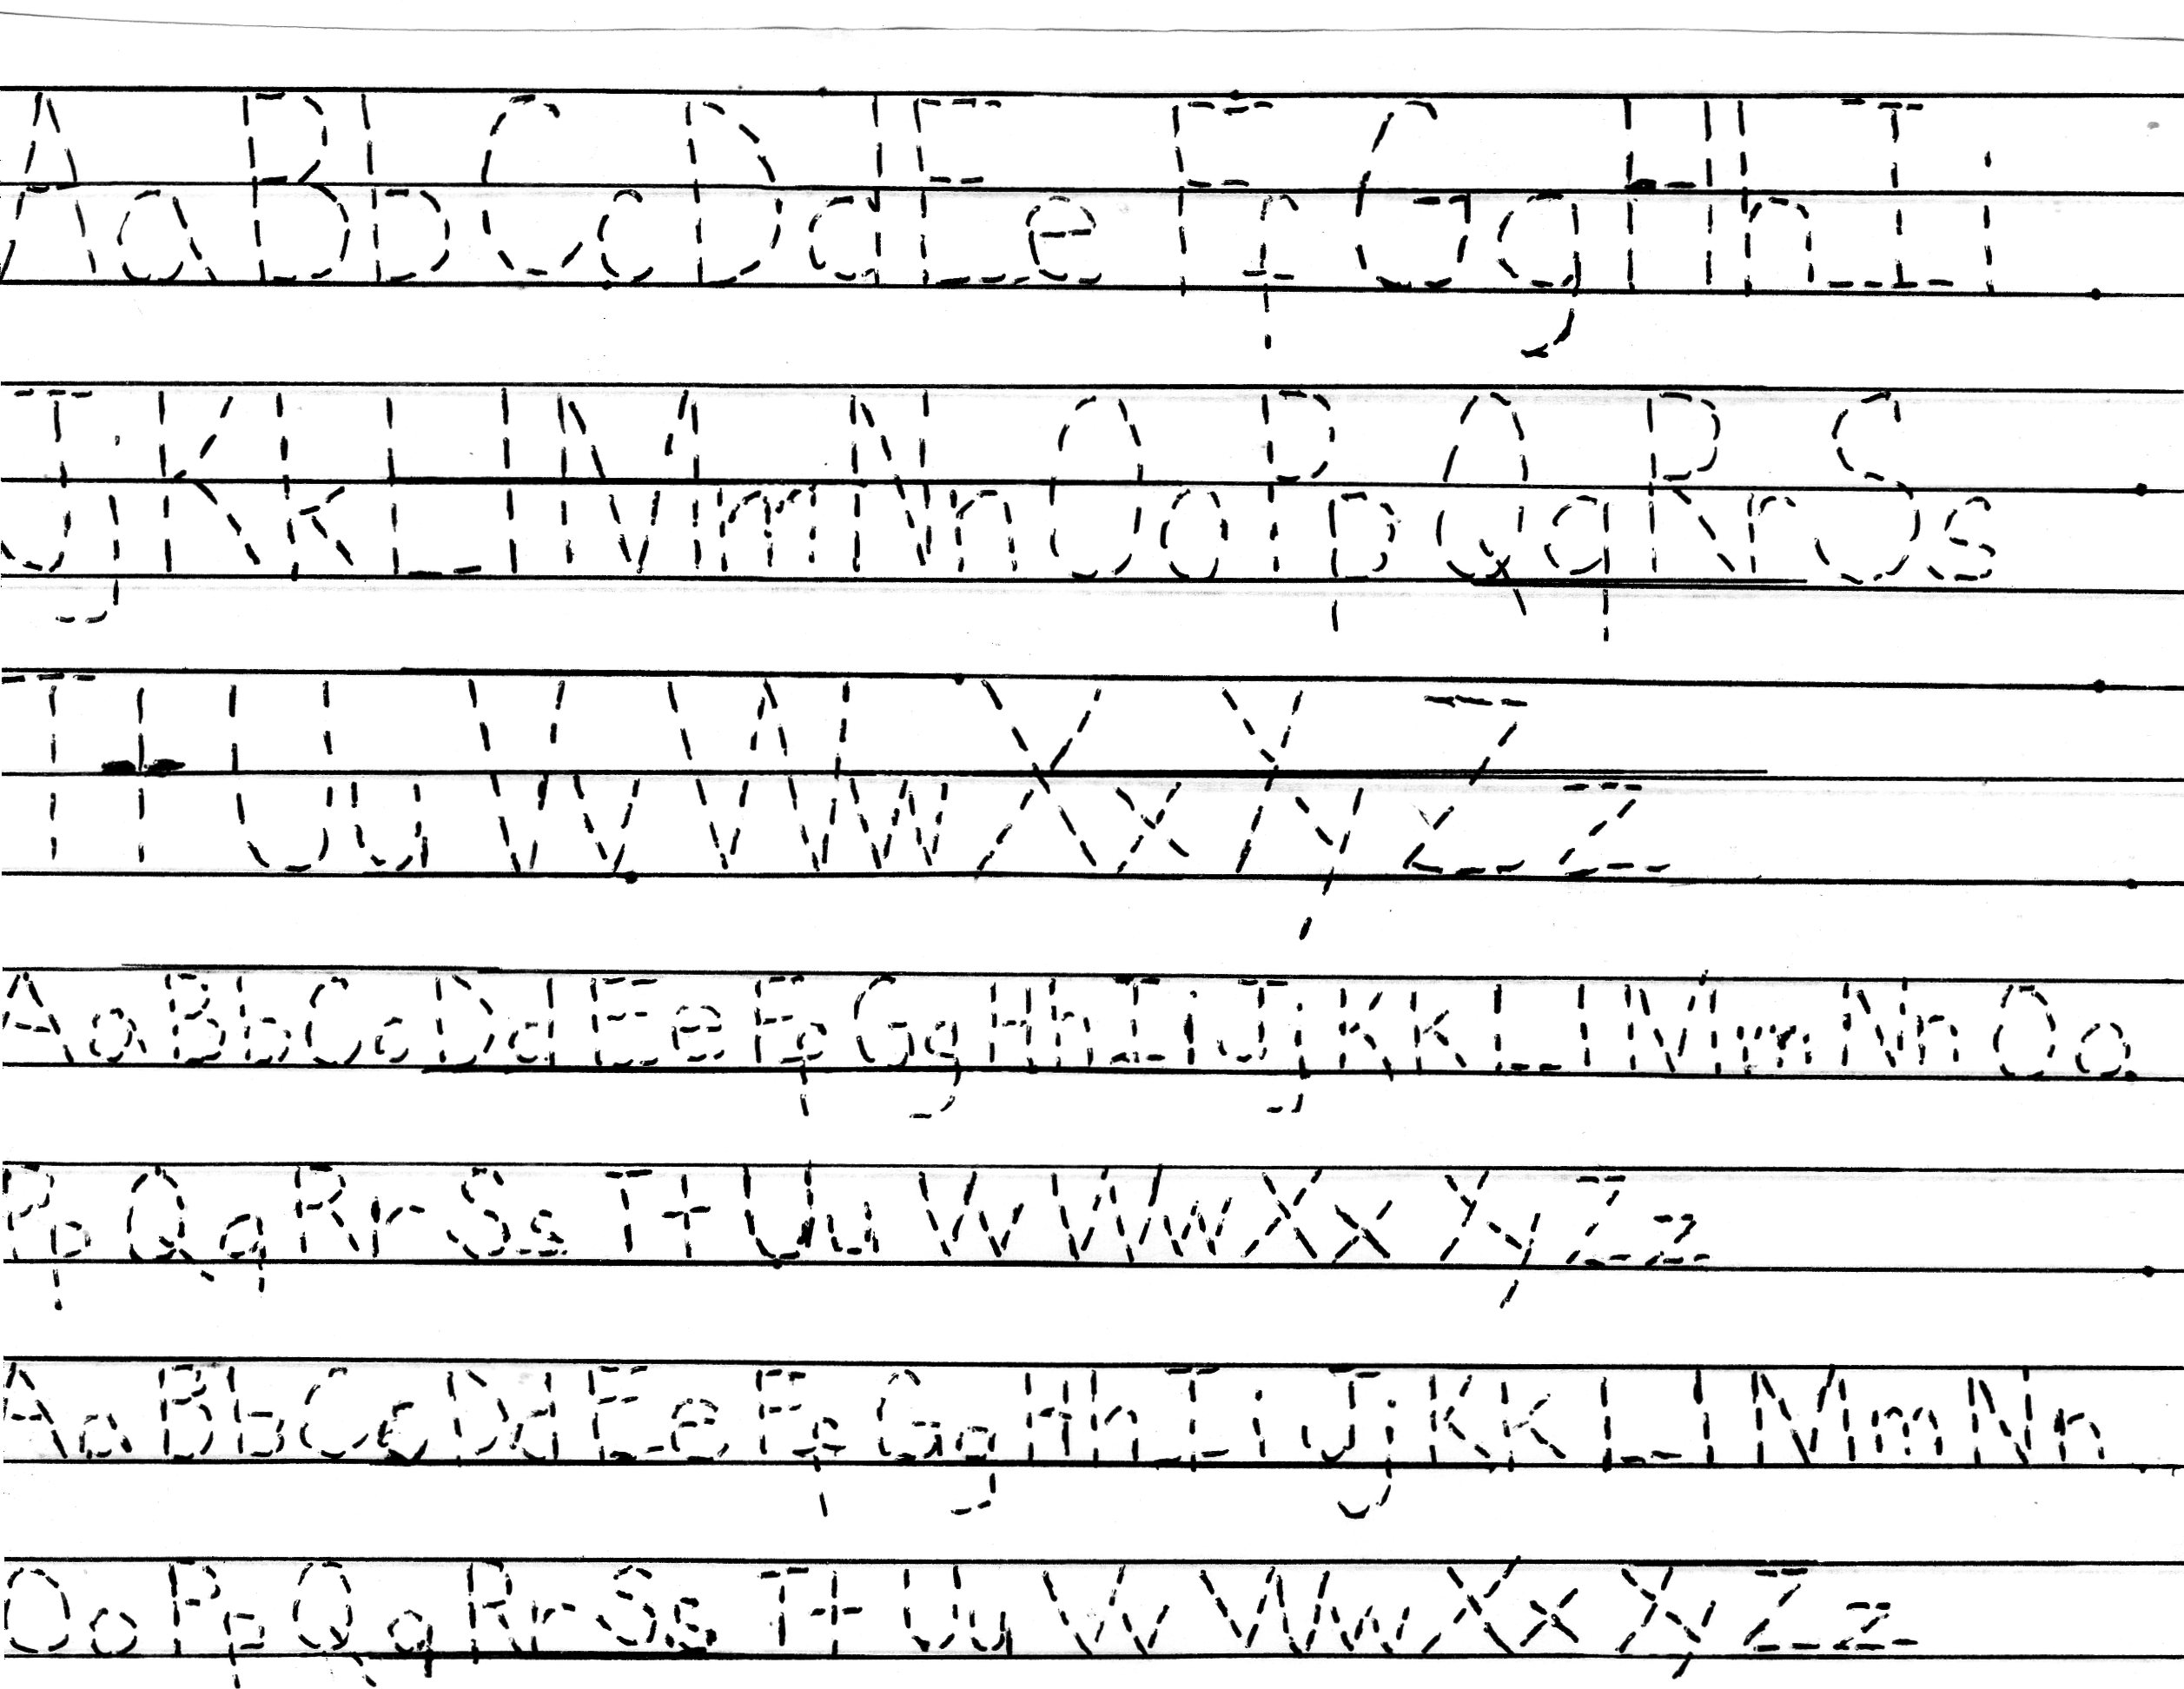 Aa Bb Cc Dd Ee Ff Gg Hh Ii
Jj Kk Ll Mm Nn Oo Pp Qq Rr Ss
Tt Uu Vv Ww Xx Yy Zz
Aa Bb Cc Dd Ee Ff Gg Hh Ii Jj Kk Ll Mm Nn Oo
Pp Qq Rr Ss Tt Uu Vv Ww Xx Yy Zz
Aa Bb Cc Dd Ee Ff Gg Hh Ii Jj Kk Ll Mm Nn
Oo Pp Qq Rr Ss Tt Uu Vv Ww Xx Yy Zz